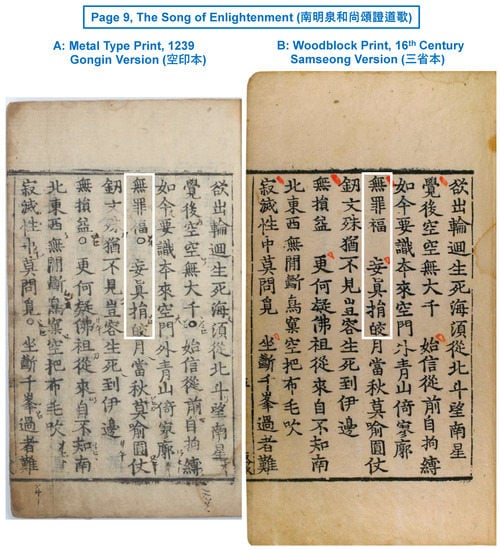 Page 9, The Song of Enlightenment (南明泉和尚頌證道歌)
A: Metal Type Print, 1239
Gongin Version (空印本)
欲出輪迴生死海須從北斗望南星
覺後空空無大千○始信從前自拘縛
如今要識夲來空門外青山倚寥廓
無罪福○妄眞捐皎月當秋莫喻圓仗
釼文殊猶不見豈容生死到伊邊
無損益○更何疑佛祖從來自不知南
北東西無間斷鳥窠空把布毛吹
寂滅性中莫問覓○坐斷千峯過者難
B: Woodblock Print, 16th Century
Samseong Version (三省本)
欲出輪迴生死海須從北斗望南星
覺後空空無大千 始信從前自拘縛
如今要識夲來空門外青山倚寥廓
無罪福 妄眞捐皎月當秋莫喻圓仗
釼文殊猶不見豈容生死到伊邊
無損益 更何疑佛祖從來自不知南
北東西無間斷鳥窠空把布毛吹
寂滅性中莫問覓 坐斷千峯過者難